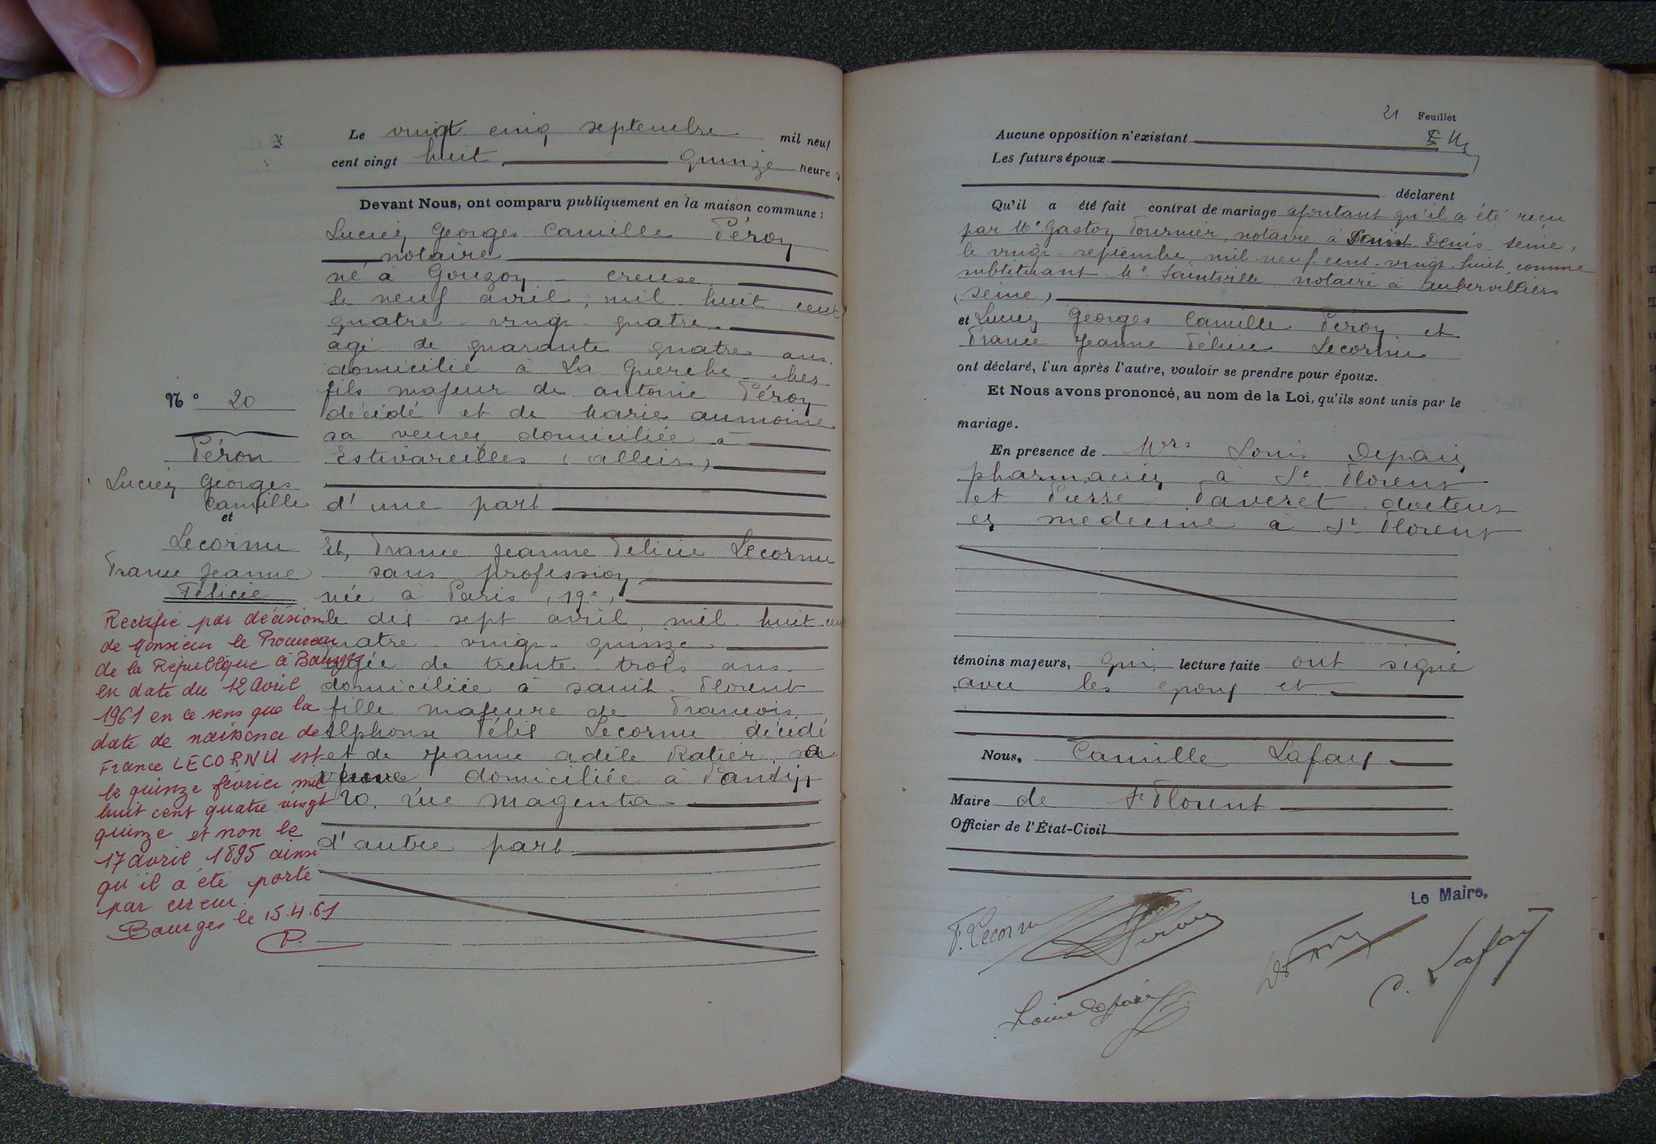 Le vingt cinq septembre mil neuf
cent vingt huit quinze heures
Devant Nous, ont comparu publiquement en la maison commune :
Lucien Georges Camille Péron
notaire
né à Gouzon creuse
le neuf avril, mil huit cent
quatre vingt quatre
agé de quarante quatre ans
domicilié à La Guerche cher
fils majeur de antoine Péron
décédé et de Marie aumoine
sa veuve domiciliée à
Estivareilles (allier)
d'une part
Et, France Jeanne Félicie Lecornu
sans profession
née à Paris (19e)
le dix sept avril mil huit cent
quatre vingt quinze
agée de trente trois ans
domiciliée à saint Florent
fille majeure de Francois
Alphonse Félix Lecornu décédé
et de Jeanne adèle Ratier sa
veuve domiciliée à Pantin
20, rue Magenta
d'autre part
N° 20
Péron
Lucien Georges
Camille
et
Lecornu
France Jeanne
Félicie
Rectifié par décision
de Monsieur le Procureur
de la République à Bourges
en date du 12 Avril
1961 en ce sens que la
date de naissance de
France LECORNU est
le quinze février mil
huit cent quatre vingt
quinze et non le
17 avril 1895 ainsi
qu'il a été porté
par erreur
Bourges le 15.4.61
P.
21 Feuillet
Aucune opposition n'existant
Les futurs époux
déclarent
Qu'il a été fait contrat de mariage ajoutant qu'il a été recu
par Me Gaston Fournier, notaire à Saint Denis Seine,
le vingt septembre mil neuf cent vingt huit comme
subtituant Me Saintville notaire à Aubervilliers
(Seine)
et Lucien Georges Camille Péron et
France Jeanne Félicie Lecornu
ont déclaré, l'un après l'autre, vouloir se prendre pour époux.
Et Nous avons prononcé, au nom de la Loi, qu'ils sont unis par le
mariage.
En présence de Mrs Louis Depair
pharmacien à St Florent
et Pierre Paveret docteur
es medecine à St Florent
témoins majeurs, qui, lecture faite ont signé
avec les epoux et
Nous, Camille Lafay
Maire de St Florent
Officier de l'État-Civil
Le Maire,
F. Lecornu
Péron
Louis Depair
C. Lafay